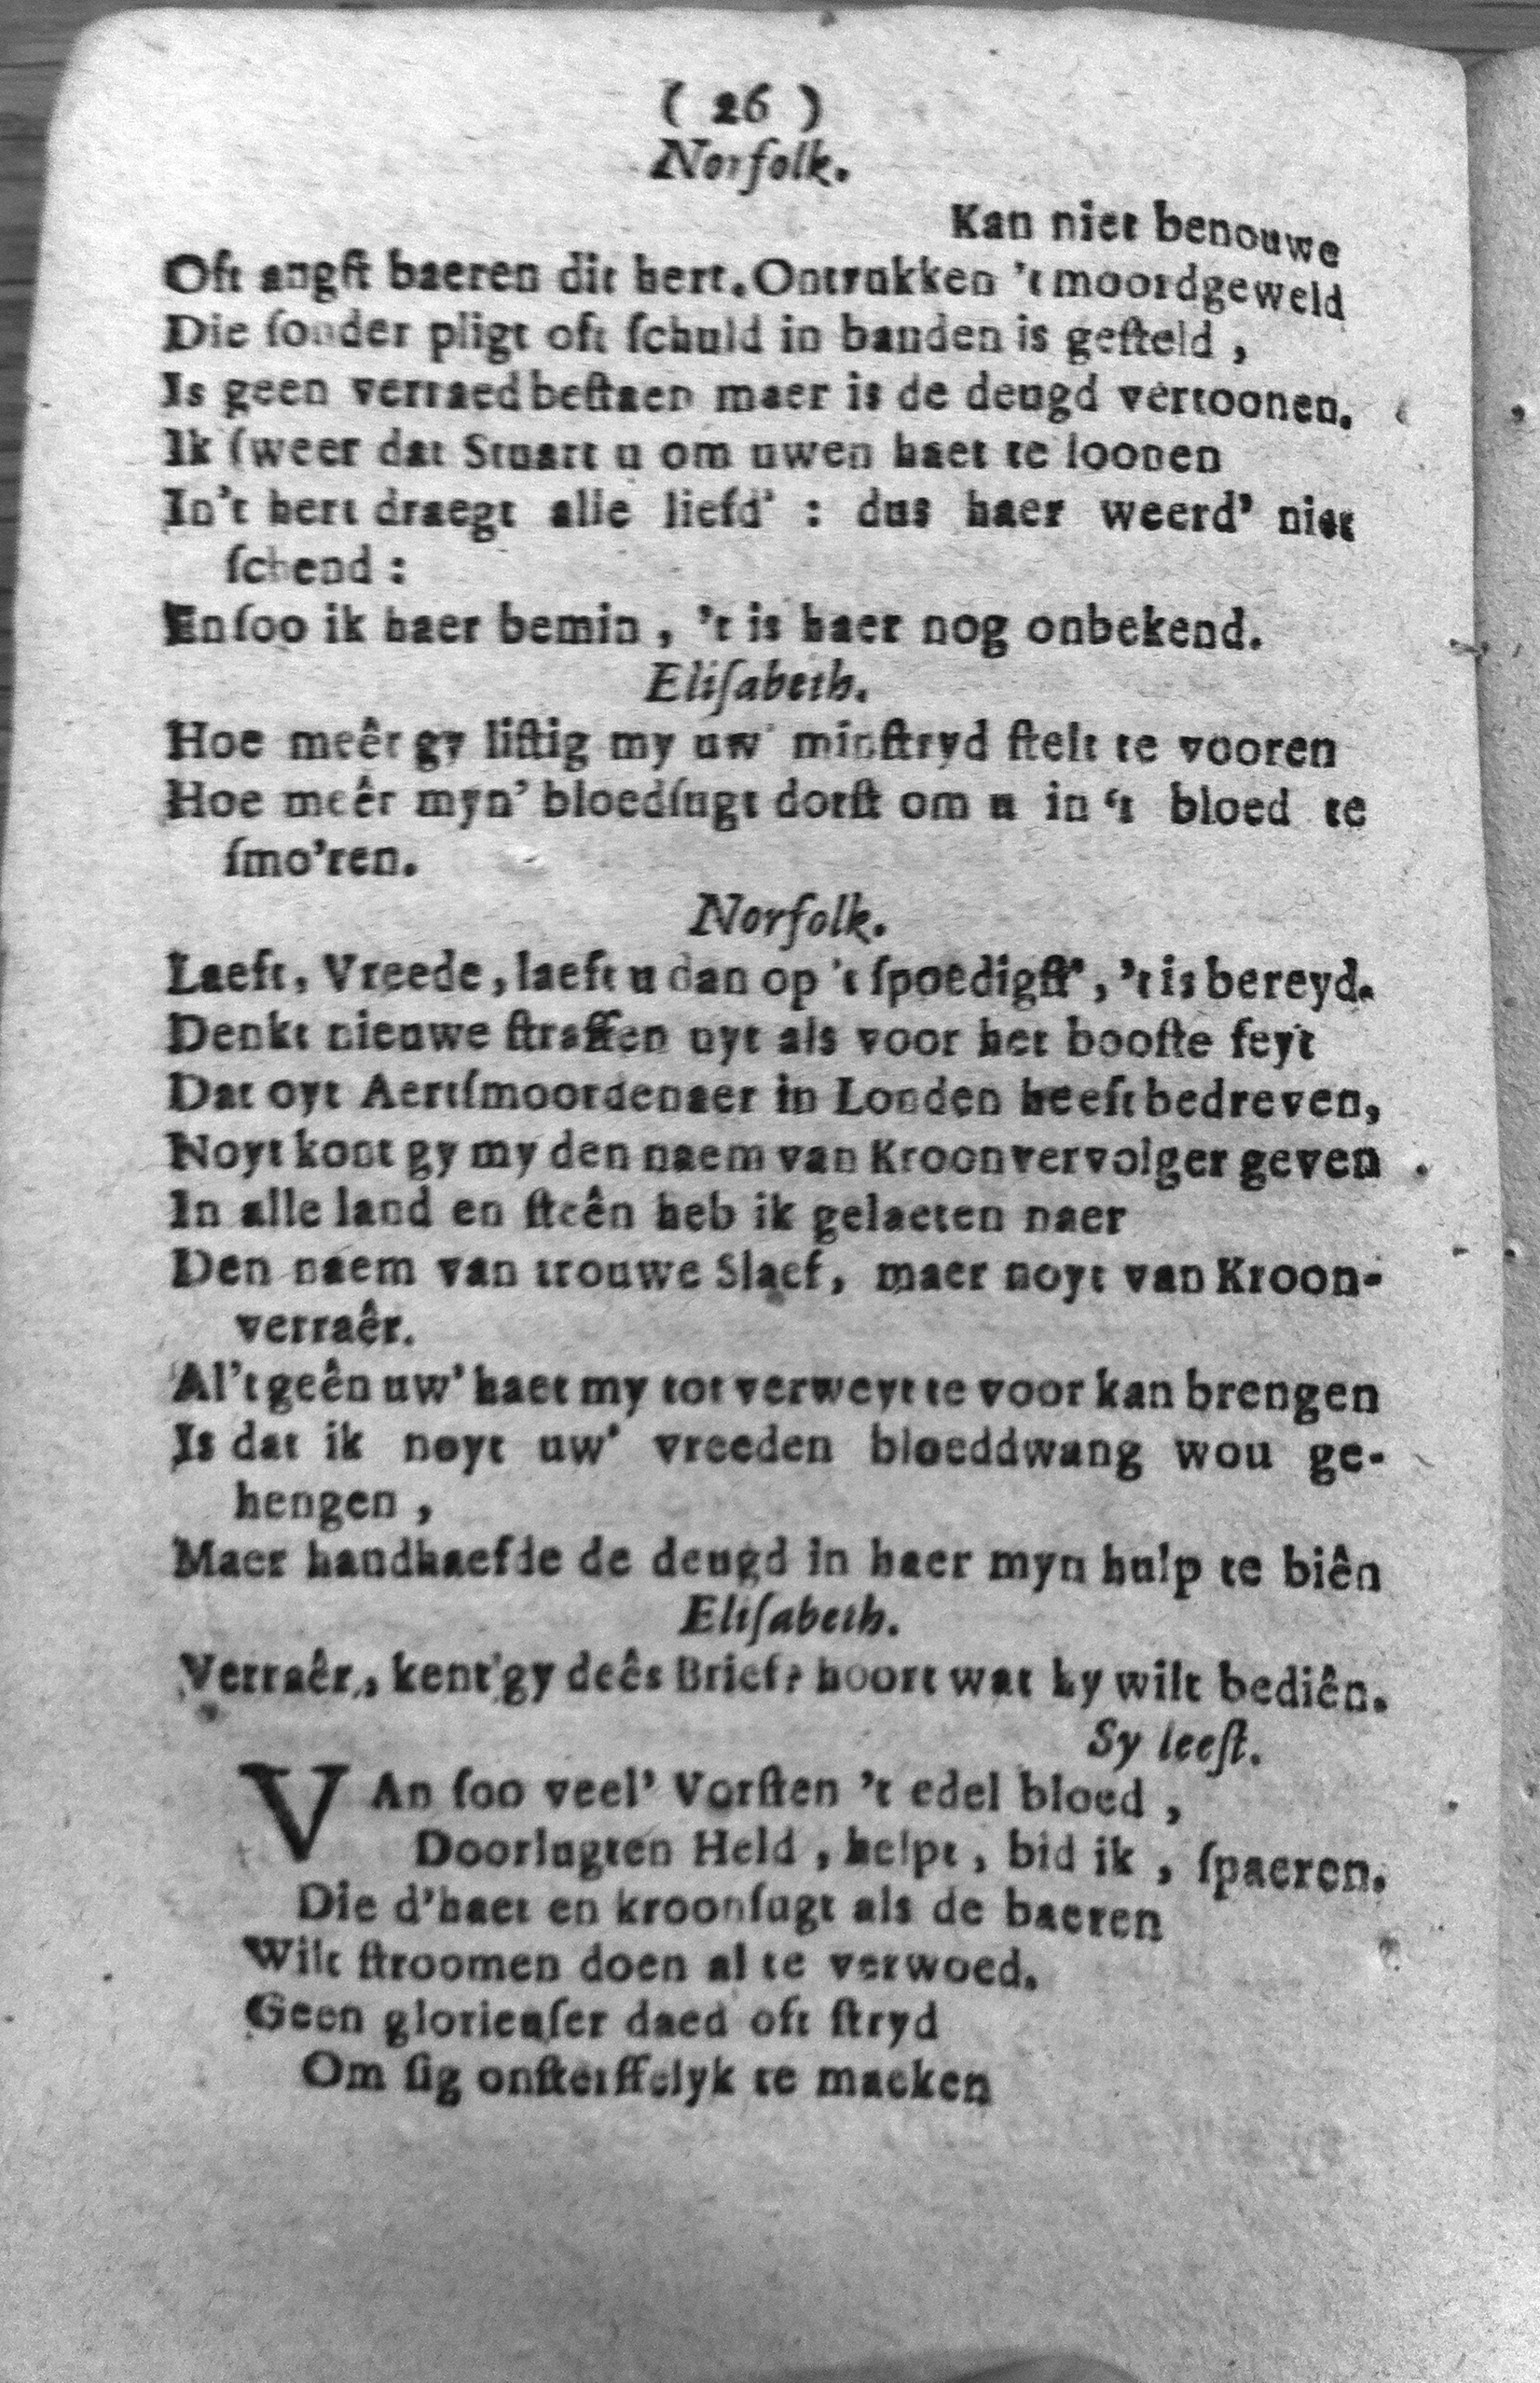 ( 26 )
Norfolk.
Kan niet benouwe
Oft angſt baeren dit hert. Ontrukken 't moordgeweld
Die ſonder pligt oft ſchuld in banden is geſteld ,
Is geen verraed beſtaen maer is de deugd vertoonen.
Ik ſweer dat Stuart u om uwen haet te loonen
In't hert draegt alle liefd' : dus haer weerd' niet
ſchend :
En ſoo ik haer bemin , 't is haer nog onbekend.
Eliſabeth.
Hoe meêr gy liſtig my uw' minſtryd ſtelt te vooren
Hoe meêr myn' bloedſugt dorſt om u in ‘t bloed te
ſmo'ren.
Norfolk.
Laeft, Vreede, laeft u dan op 't ſpoedigſt', 't is bereyd.
Denkt nieuwe ſtraffen uyt als voor het booſte feyt
Dat oyt Aertſmoordenaer in Londen heeft bedreven,
Noyt kont gy my den naem van Kroonvervolger geven
In alle land en ſteên heb ik gelaeten naer
Den naem van trouwe Slaef, maer noyt van Kroon-
verraêr.
Al't geên uw' haet my tot verweyt te voor kan brengen
Is dat ik noyt uw' vreeden bloeddwang wou ge-
hengen ,
Maer handhaefde de deugd in haer myn hulp te biên
Eliſabeth.
Verraêr, kent'gy deês Brief? hoort wat hy wilt bediên.
Sy leeſt.
VAn ſoo veel' Vorſten 't edel bloed ,
Doorlugten Held , helpt , bid ik , ſpaeren.
Die d'haet en kroonſugt als de baeren
Wilt ſtroomen doen al te verwoed.
Geen glorieuſer daed oft ſtryd
Om ſig onſterffelyk te maeken